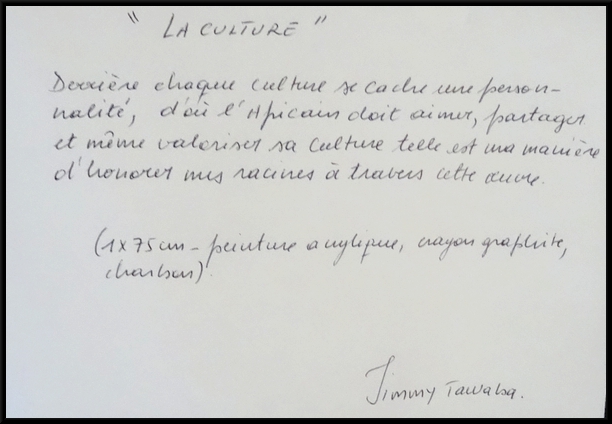 " LA CULTURE "
Derrière chaque culture se cache une person-
nalité, d'où l'Africain doit aimer, partager
et même valoriser sa culture telle est ma manière
d'honorer mes racines à travers cette œuvre.
(1 x 75cm - peinture acrylique, crayon graphite,
charbon)
Jimmy Tawaba.